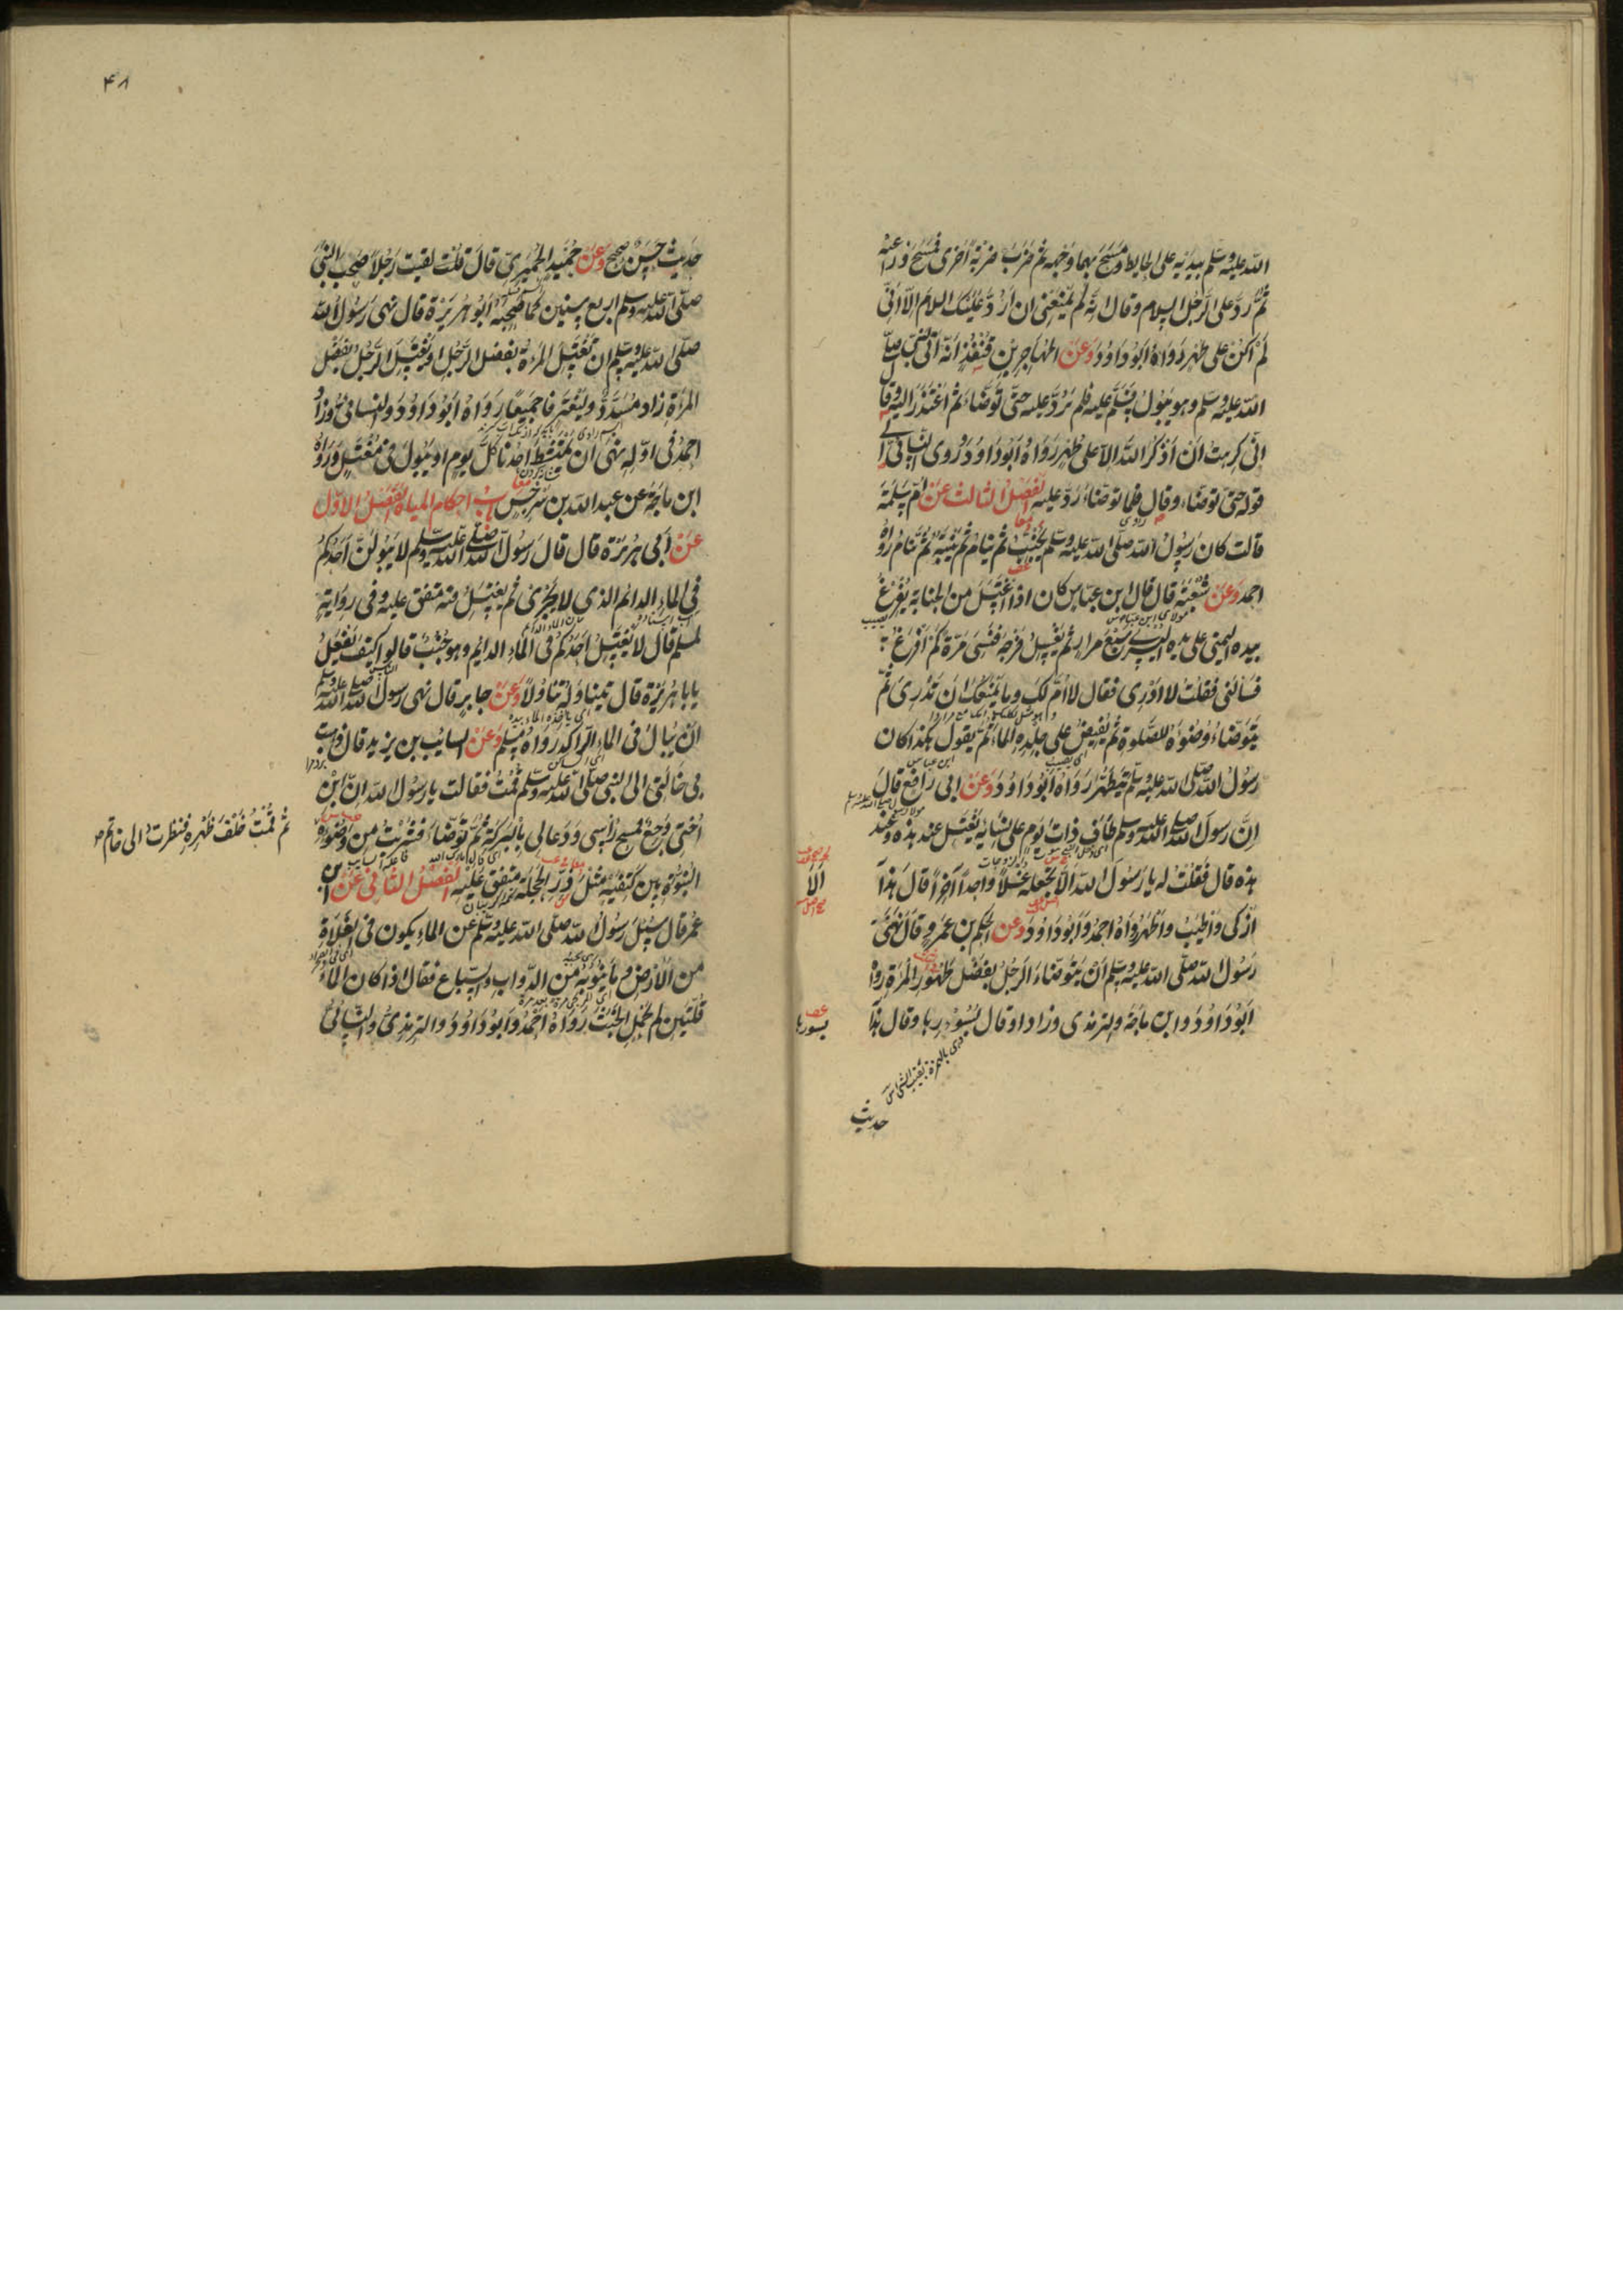 الله عليه وسلم بيديه على الحايط ومسح بهما وجهه ثم ضرب ضربة اخرى فمسح ذراعيه
ثم رد على الرجل السلام وقال انه لم يمنعني ان ارد عليك السلام الا اني
لم اكن على طهر رواه ابوداود وعن المهاجر بن قنفذ انه اتى النبي صلى
الله عليه وسلم وهو يبول فسلم عليه فلم يرد عليه حتى توضاء ثم اعتذر اليه وقال
اني كرهت ان اذكر الله الا على طهر رواه ابوداود وروى النسائي الى
قوله حتى توضاء وقال فلما توضاء رد عليه الفصل الثالث عن ام سلمة
قالت كان رسول الله صلى الله عليه وسلم يجنب ثم ينام ثم ينتبه ثم ينام رواه
احمد وعن شعبة قال قال ابن عباس كان اذا اغتسل من الجنابة يفرغ
بيده اليمنى على يده اليسرى سبع مرار ثم يغسل فرجه فنسي مرة كم افرغ
فسألني فقلت لا ادري فقال لا ام لك وما يمنعك ان تدري ثم
يتوضاء وضوءه للصلوة ثم يفيض على جلده الماء ثم يقول هكذا كان
رسول الله صلى الله عليه وسلم يتطهر رواه ابوداود وعن ابي رافع قال
ان رسول الله صلى الله عليه وسلم طاف ذات يوم على نسائه يغتسل عند هذه وعند
هذه قال فقلت له يا رسول الله الا تجعله غسلا واحدا آخرا قال هذا
الا
ازكى واطيب واطهر رواه احمد وابوداود وعن الحكم بن عمرو قال نهى
رسول الله صلى الله عليه وسلم ان يتوضاء الرجل بفضل طهور المرأة رواه
ابوداود وابن ماجة والترمذي وزاد او قال بسؤرها وقال هذا
بسورها
حديث
۴۸
حديث حسن صحيح وعن حميد الحميري قال قلت لقيت رجلا صحب النبي
صلى الله عليه وسلم اربع سنين كما صحبه ابو هريرة قال نهى رسول الله
صلى الله عليه وسلم ان تغتسل المرأة بفضل الرجل او يغتسل الرجل بفضل
المرأة زاد مسدد وليغترفا جميعا رواه ابوداود والنسائي وزاد
احمد في اوله نهى ان يمتشط احدنا كل يوم او يبول في مغتسل ورواه
ابن ماجة عن عبد الله بن سرجس باب احكام المياه الفصل الاول
عن ابي هريرة قال قال رسول الله صلى الله عليه وسلم لا يبولن احدكم
في الماء الدائم الذي لا يجري ثم يغتسل فيه متفق عليه وفي رواية
لمسلم قال لا يغتسل احدكم في الماء الدايم وهو جنب قالوا كيف يفعل
يابا هريرة قال يتناوله تناولا وعن جابر قال نهى رسول الله صلى الله عليه وسلم
ان يبال في الماء الراكد رواه مسلم وعن السايب بن يزيد قال ذهبت
بي خالتي الى النبي صلى الله عليه وسلم فقالت يا رسول الله ان ابن
اختي وجع فمسح رأسي ودعا لي بالبركة ثم توضاء فشربت من وضوئه
ثم قمت خلف ظهره فنظرت الى خاتم
النبوة بين كتفيه مثل زر الحجلة متفق عليه الفصل الثاني عن ابن
عمر قال سئل رسول الله صلى الله عليه وسلم عن الماء يكون في الفلاة
من الارض وما ينوبه من الدواب والسباع فقال اذا كان الماء
قلتين لم يحمل الخبث رواه احمد وابوداود والترمذي والنسائي